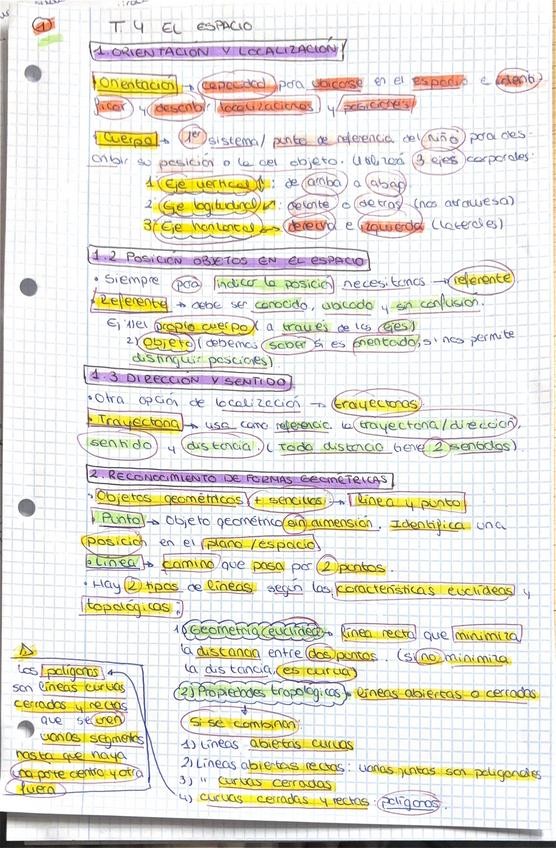 1
T. 4 EL ESPACIO
1. ORIENTACIÓN Y LOCALIZACIÓN
Orientación → capacidad para ubicarse en el espacio e identi-
ficar y describir localizaciones y posiciones
Cuerpo → 1er sistema/ punto de referencia del niño para des-
cribir su posición o la del objeto. Utilizará 3 ejes corporales:
1. Eje vertical ↕: de arriba a abajo
2. Eje logitudinal ↙: delante o detrás (nos atraviesa)
3. Eje horizontal ↔ derecha e izquierda (laterales)
1.2 POSICIÓN OBJETOS EN EL ESPACIO
• Siempre para indicar la posición necesitamos → referente
• Referente → debe ser conocido, ubicado y sin confusión.
Ej: 1) el propio cuerpo (a través de los ejes)
2) Objeto (debemos saber si es orientado, si nos permite
distinguir posiciones)
1.3 DIRECCIÓN Y SENTIDO
• Otra opción de localización → trayectorias
• Trayectoria → usa como referencia la trayectoria/dirección,
sentido y distancia. (Toda distancia tiene 2 sentidos)
2. RECONOCIMIENTO DE FORMAS GEOMÉTRICAS
• Objetos geométricos + sencillos → línea y punto
• Punto → Objeto geométrico sin dimensión. Identifica una
posición en el plano/espacio
• Línea → camino que pasa por 2 puntos.
• Hay 2 tipos de líneas según las características euclídeas y
topológicas:
1) Geometría euclídea → línea recta que minimiza
la distancia entre dos puntos. (si no minimiza
la distancia, es curva)
2) Propiedades topológicas → líneas abiertas o cerradas
↓
si se combinan
1) Líneas abiertas curvas
2) Líneas abiertas rectas: varias juntas son poligonales
3) " curvas cerradas
4) curvas cerradas y rectas: polígonos.
Los polígonos
son líneas curvas
cerradas y rectas
que se unen
varios segmentos
hasta que haya
una parte dentro y otra
fuera